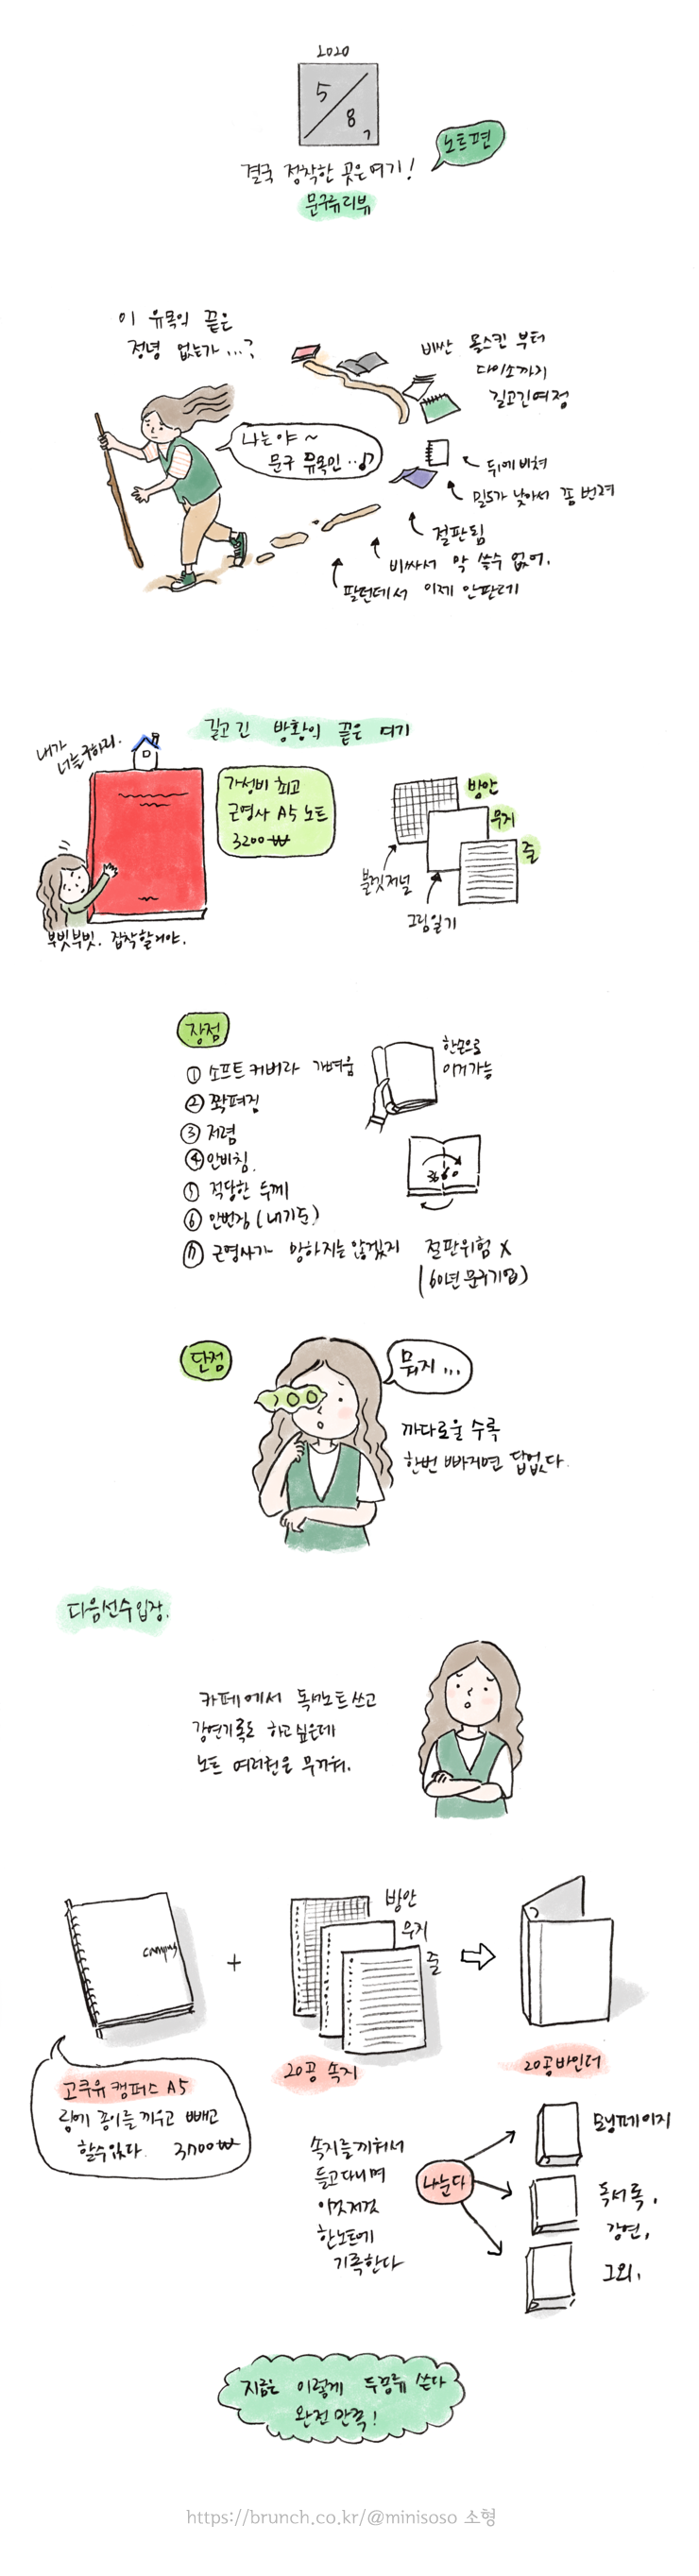 2020
5/8
노트편
결국 정착한 곳은 여기!
문구류 리뷰
이 유목의 끝은
정녕 없는가...?
비싼 몰스킨 부터
다이소까지
길고긴여정
나는야~
문구 유목인..♪
뒤에 비쳐
밀도가 낮아서 좀 번져
절판됨
비싸서 막 쓸수 없어.
팔던데서 이제 안판대
길고 긴 방황의 끝은 여기
내가
너를 구하리.
가성비 최고
근영사 A5 노트
3200₩
방안
무지
줄
불렛저널
그림일기
부빗부빗. 집착할거야.
장점
① 소프트 커버라 가벼움
② 쫙펴짐
③ 저렴
④ 안비침.
⑤ 적당한 두께
⑥ 안번짐 (내기준)
⑦ 근영사가 망하지는 않겠지 절판위험 X
(60년 문구기업)
한손으로
이거가능
360
단점
뭐지...
까다로울 수록
한번 빠지면 답없다.
다음선수입장.
카페에서 독서노트쓰고
강연기록도 하고싶은데
노트 여러권은 무거워.
campus
+
방안
무지
줄
고쿠유 캠퍼스 A5
링에 종이를 끼우고 빼고
할수있다. 3700₩
20공 속지
20공바인더
속지를끼워서
들고다니며
이것저것
한노트에
기록한다
나눈다
모닝페이지
독서록,
강연,
그외,
지금은 이렇게 두종류 쓴다
완전 만족!
https://brunch.co.kr/@minisoso 소형